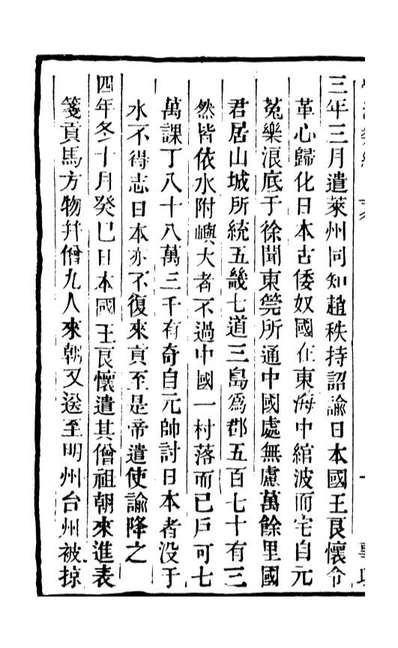 三年三月遣萊州同知趙秩持詔諭日本國王良懷令
革心歸化日本古倭奴國在東海中綰波而宅自元
菟樂浪底于徐聞東筦所通中國處無慮萬餘里國
君居山城所統五畿七道三島爲郡五百七十有三
然皆依水附嶼大者不過中國一村落而已戶可七
萬課丁八十八萬三千有奇自元師討日本者没于
水不得志日本亦不復來貢至是帝遣使諭降之
四年冬十月癸巳日本國王良懷遣其僧祖朝來進表
箋貢馬方物幷僧九人來朝又送至明州台州被掠